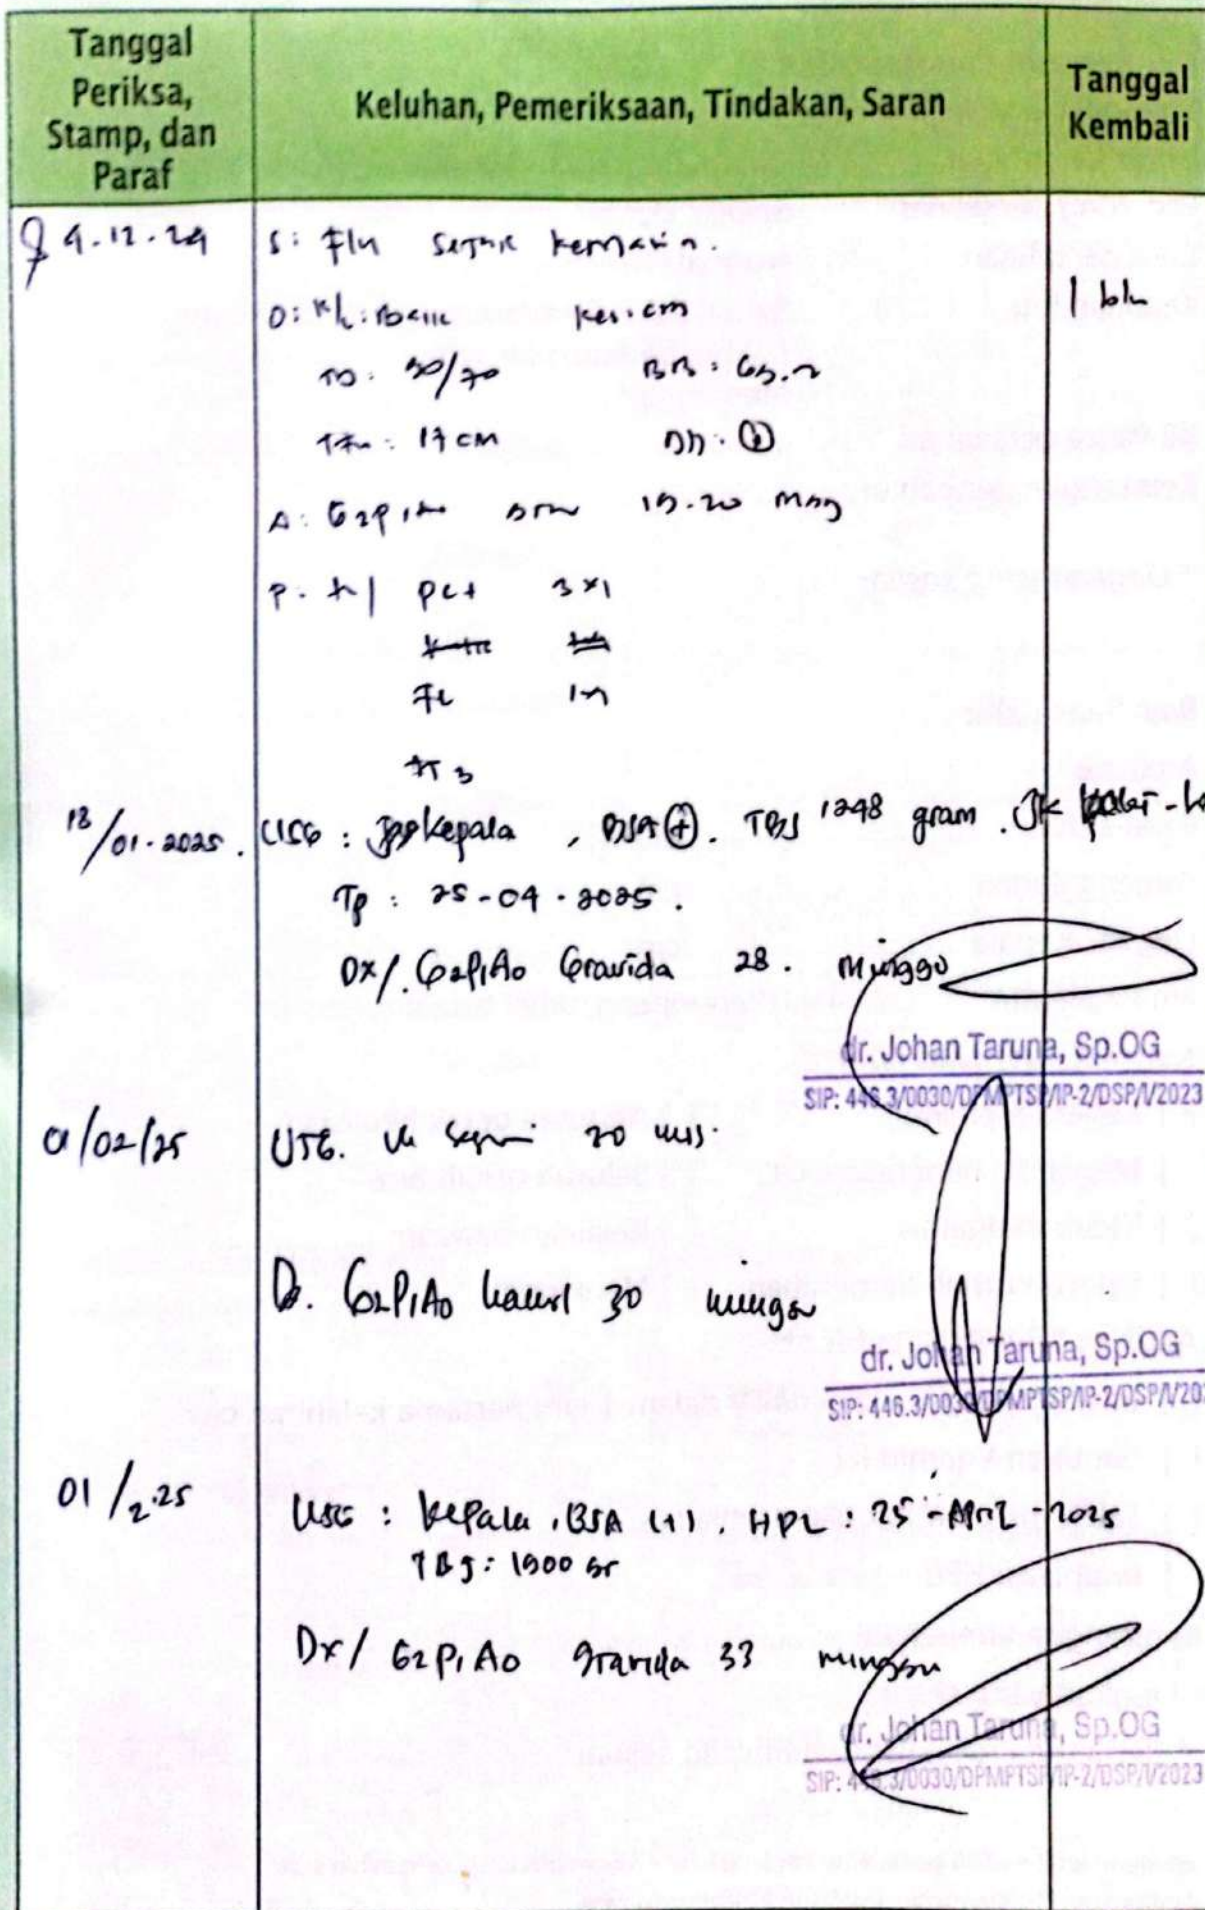 Tanggal Periksa, Stamp, dan Paraf
Keluhan, Pemeriksaan, Tindakan, Saran
Tanggal Kembali
4.12.24
S: Flu sejak kemarin.
O: K/u: Baik kes: cm
1 bln
TD: 90/70 BB: 65.2
TFU: 17 cm
A: G2P1A0 19-20 mgg
P: PCT 3x1
Fe
18/01-2025. USG: kepala, BSA (+). TBJ 1248 gram. JK
Tp: 25-04-2025.
DX/. G2P1A0 Gravida 28. minggu
dr. Johan Taruna, Sp.OG
SIP: 446.3/0030/DPMPTSP/IP-2/DSP/I/2023
01/02/25 USG. 30
G2P1A0 hamil 30 minggu
dr. Johan Taruna, Sp.OG
SIP: 446.3/0030/DPMPTSP/IP-2/DSP/I/20
01/2.25 USG: kepala, BSA (+). HPL: 25-April-2025
TBJ: 1900 gr
DX/ G2P1A0 gravida 33 minggu
dr. Johan Taruna, Sp.OG
SIP: 446.3/0030/DPMPTSP/IP-2/DSP/I/2023